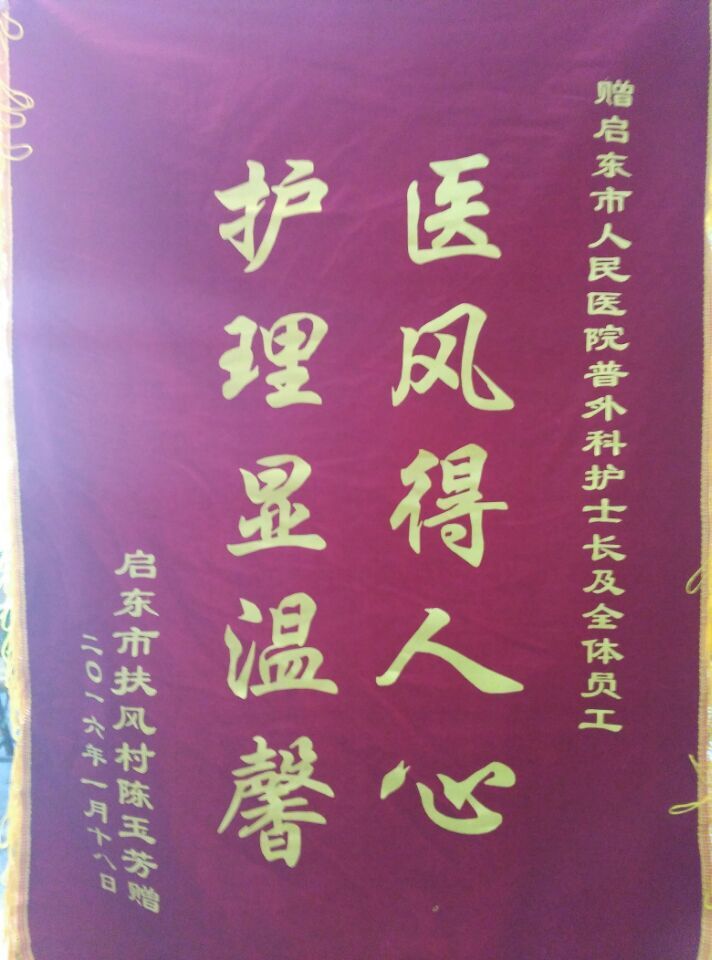 赠启东市人民医院普外科护士长及全体员工
医风得人心
护理显温馨
启东市扶风村陈玉芳赠
二〇一六年一月十八日